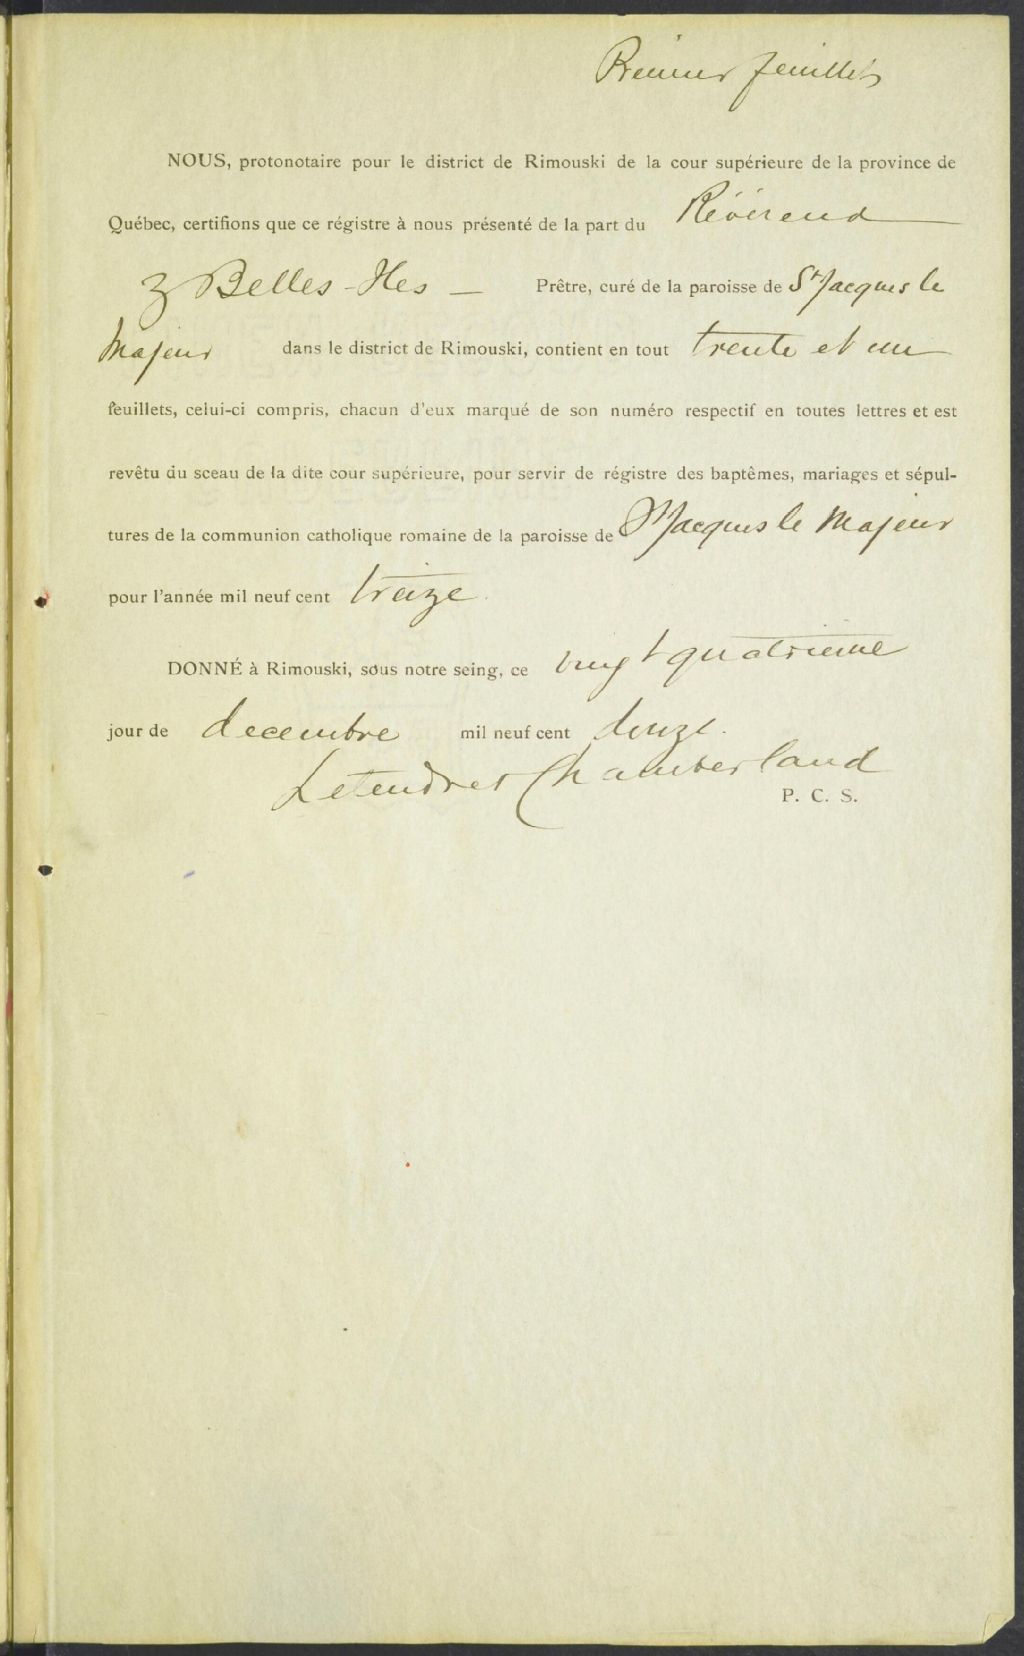 Premier feuillet
NOUS, protonotaire pour le district de Rimouski de la cour supérieure de la province de
Québec, certifions que ce régistre à nous présenté de la part du Révérend
Z Belles-Iles — Prêtre, curé de la paroisse de St Jacques le
Majeur dans le district de Rimouski, contient en tout trente et un
feuillets, celui-ci compris, chacun d'eux marqué de son numéro respectif en toutes lettres et est
revêtu du sceau de la dite cour supérieure, pour servir de régistre des baptêmes, mariages et sépul-
tures de la communion catholique romaine de la paroisse de St Jacques le Majeur
pour l'année mil neuf cent treize.
DONNÉ à Rimouski, sous notre seing, ce vingt quatrieme
jour de decembre mil neuf cent douze.
Letendre & Chamberland
P. C. S.